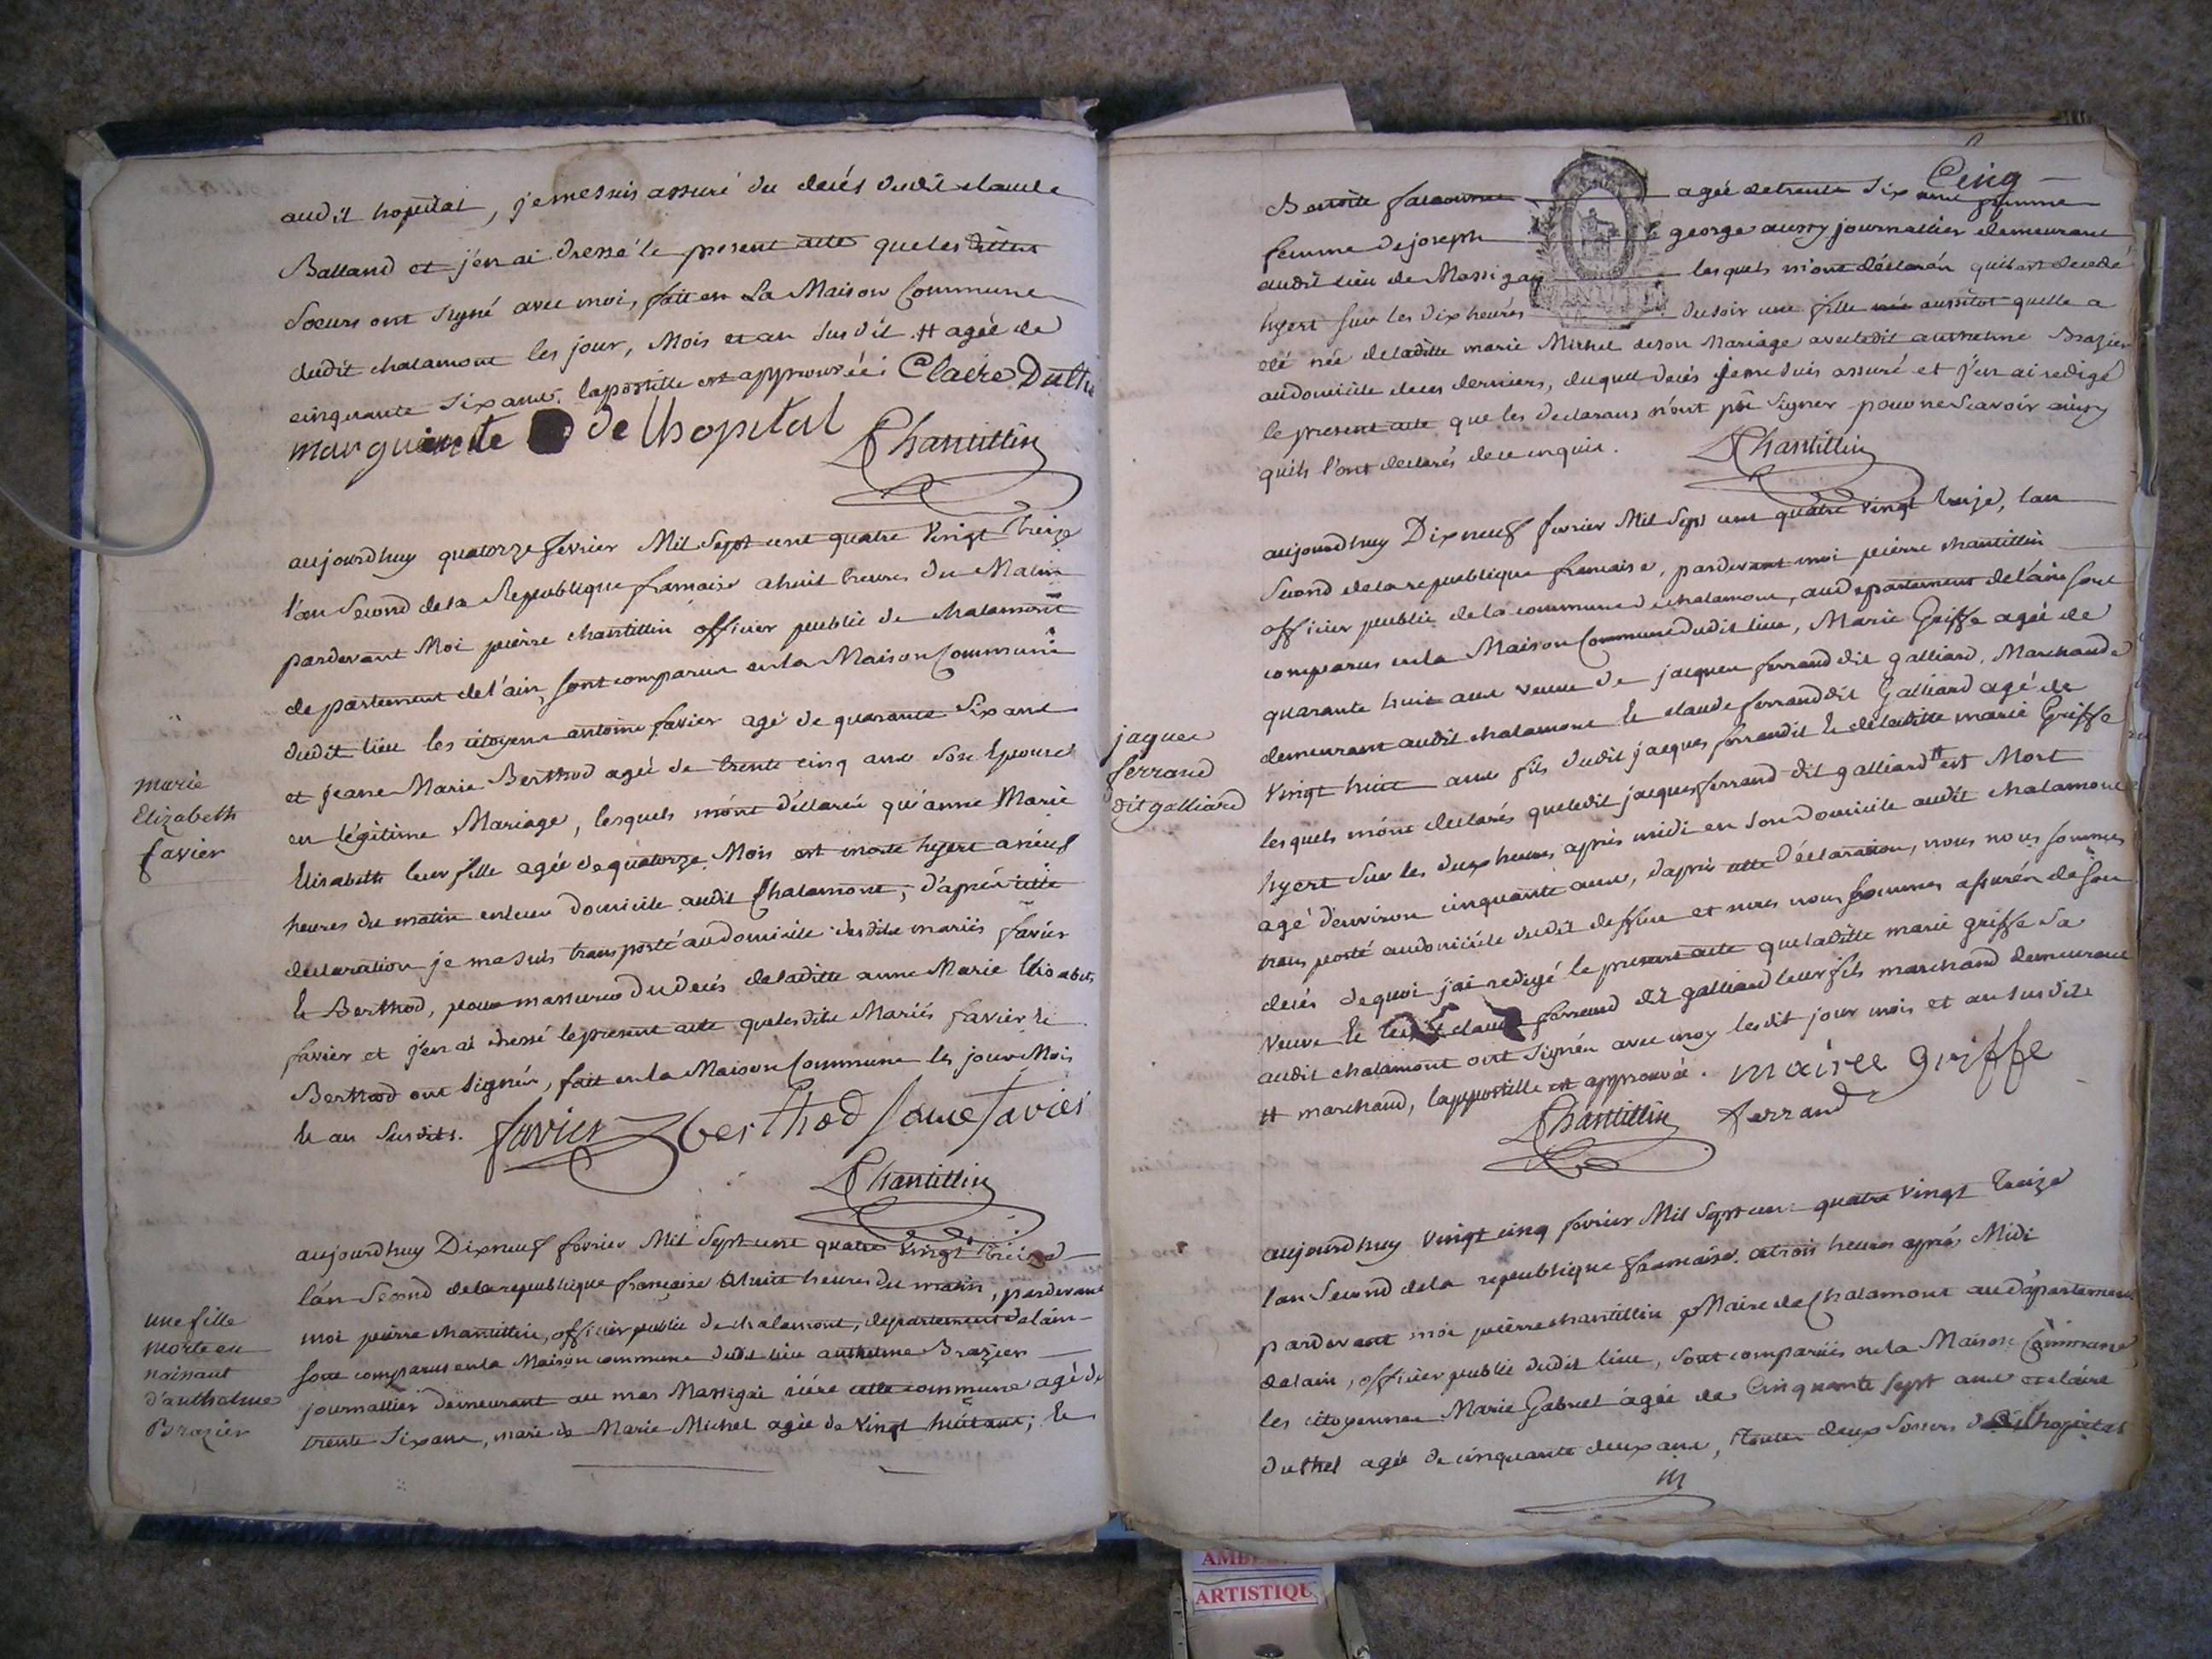 audit hopital, je me suis assuré du decés dudit claude
Balland et j'en ai dressé le present acte que les dittes
Soeurs ont signé avec moi, fait en La Maison Commune
dudit chalamont les jour, Mois et an susdit. # agée de
cinquante six ans. lapostille est approuvée: Claire Duthe
marguerite de lhopital
Chantillin
aujourdhuy quatorze fevrier Mil Sept cent quatre Vingt Treize
l'an Second de la Republique francaise a huit heures du Matin
pardevant Moi pierre chantillin officier public de chalamont
departement de l'ain, sont comparus en la Maison Commune
dudit lieu les citoyens antoine favier agé de quarante Six ans
et Jeane Marie Berthod agée de trente cinq ans Son Epouse
en légitime Mariage, lesquels m'ont déclarée qu'anne Marie
Elisabeth leur fille agée de quatorze Mois est morte hyert a neuf
heures du matin en leur Domicile audit Chalamont, d'aprés cette
declaration je me suis transporté au domicile desdits mariés favier
& Berthod, pour massurer du decés de laditte anne Marie Elisabeth
favier et j'en ai dressé le present acte que lesdits Mariés favier &
Berthod ont signés, fait en la Maison Commune les jour Mois
& an susdits. favier berthod fame favier
Chantillin
marie
Elizabeth
favier
aujourdhuy Dixneuf fevrier Mil Sept cent quatre Vingt Treize
l'an Second de la republique française a huit heures du matin, pardevant
moi pierre chantillin, officier public de chalamont, departement de lain
sont comparus en la Maison commune dudit lieu anthelme Brazier
journallier demeurant au mas Massigai riére cette commune agé de
trente Six ans, mari de Marie Michel agée de Vingt huit ans; &
une fille
morte en
naissant
d'anthelme
Brazier
Cinq
Benoite agée de trente six ans femme
femme de joseph & george aussy journallier demeurant
audit lieu de Massigay lesquels m'ont déclarés quil est decedé
hyert sur les dix heures du soir une fille née aussitot quelle a
eté née de laditte marie Michel de son Mariage avec ledit anthelme Brazier
au domicile de ces derniers, duquel decés je me suis assuré et j'en ai redigé
le present acte que les declarans n'ont pû signer pour ne scavoir ainsy
quils l'ont declarés de ce enquis. Chantillin
MINUTE
aujourdhuy Dixneuf fevrier Mil Sept cent quatre Vingt treize, lan
Second de la republique francaise, pardevant moi pierre chantillin
officier public de la commune de chalamont, au departement de l'ain sont
comparus en la Maison Commune dudit lieu, Marie Griffe agée de
quarante huit ans veuve de jacques ferrand dit galliard, Marchande
demeurant audit chalamont & claude ferrand dit Galliard agé de
Vingt huit ans fils dudit jacques ferrand dit & de laditte marie Griffe
lesquels m'ont declarés que ledit jacques ferrand dit galliard # est Mort
hyert sur les deux heures aprés midi en son domicile audit chalamont
agé d'environ cinquante ans, d'aprés cette déclaration, nous nous sommes
transporté au domicile dudit deffunt et nous nous sommes assurés de son
decés de quoi j'ai redigé le present acte que laditte marie griffe sa
Veuve & claude ferrand dit galliard leur fils marchand demeurant
audit chalamont ont signés avec moy lesdit jour mois et an susdits
# marchand, lappostille est approuvée. mairee griffe
Chantillin ferrand
jaques
ferrand
dit galliard
aujourdhuy Vingt cinq fevrier Mil Sept cent quatre Vingt Treize
lan Second de la republique francaise, a trois heures aprés Midi
pardevant moi pierre chantillin Maire de Chalamont au departement
de lain, officier public dudit lieu, sont comparues en la Maison Commune
les citoyennes Marie Gabriel agée de Cinquante sept ans et claire
duthel agée de cinquante deux ans, Toutes deux Soeurs de lhopital
AMBI
ARTISTIQU